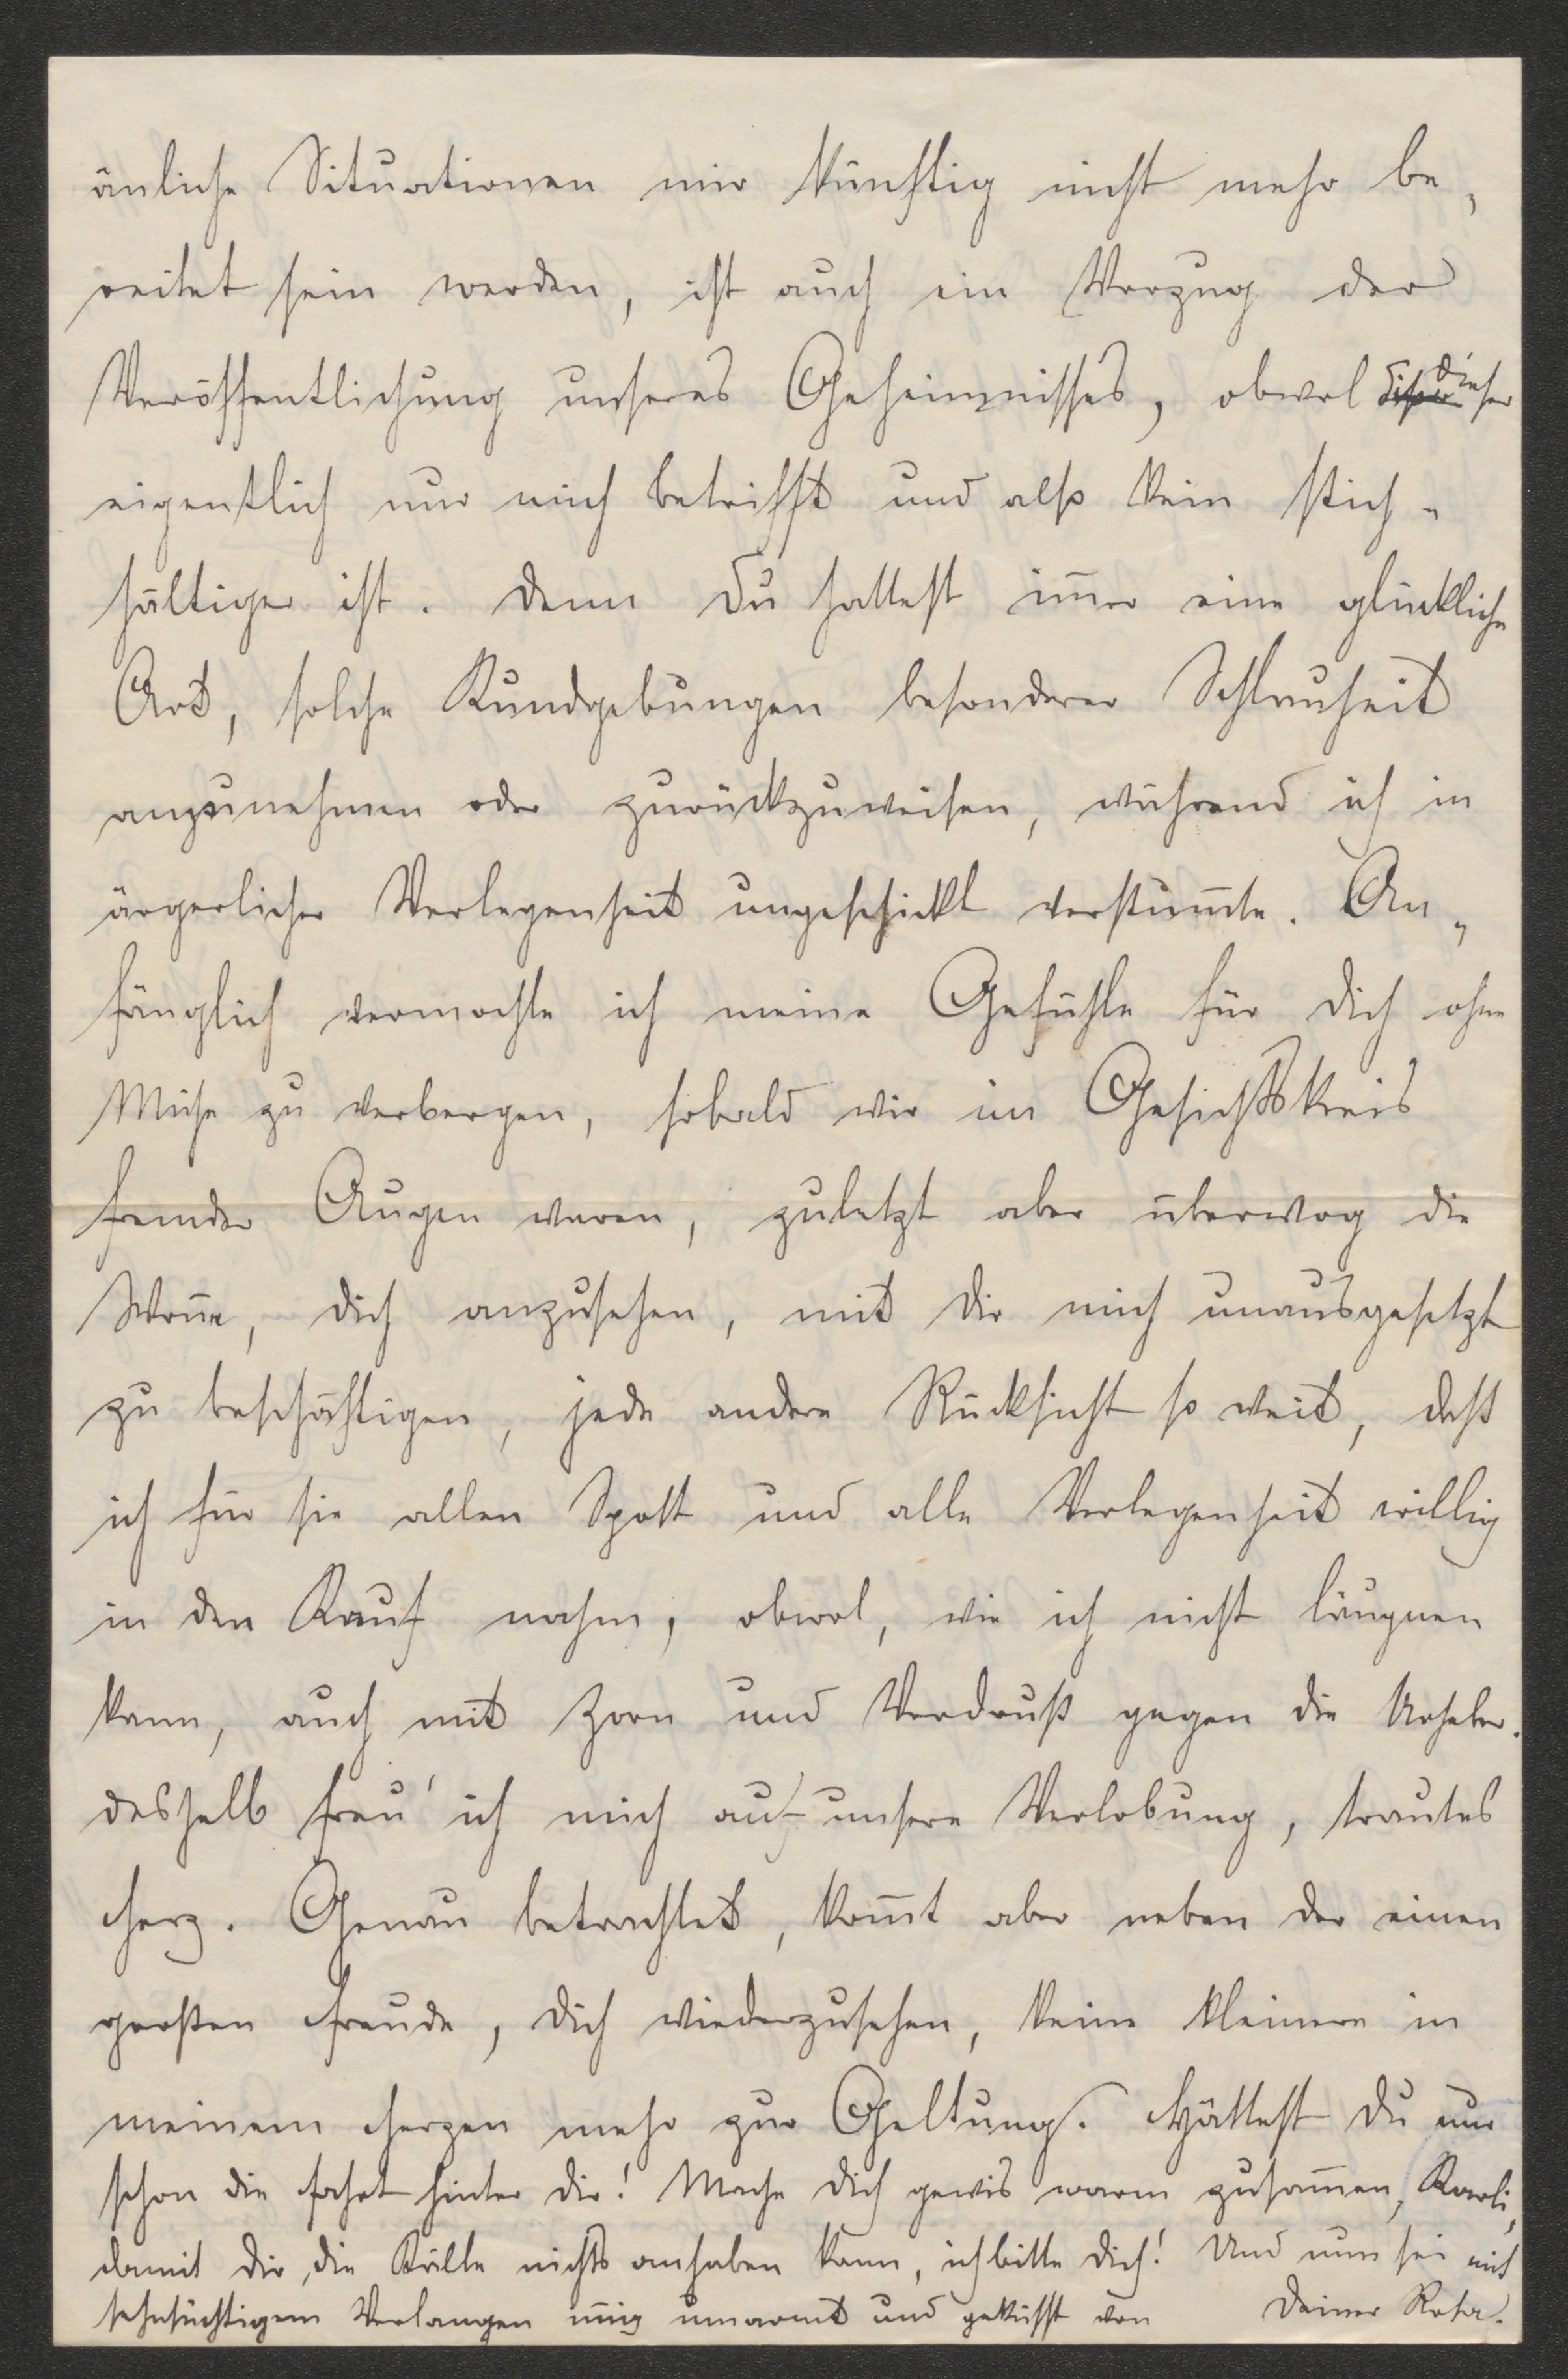 änliche Situationen mir künftig nicht mehr be„
reitet sein werden, ist auch ein Vorzug der
Veröffentlichung unseres Geheimnisses, obwol dieser
eigentlich nur mich betrifft und also kein stich„
hältiger ist. Denn Du hattest im̅er eine glückliche
Art, solche Kundgebungen besonderer Schlauheit
anzunehmen oder zurückzuweisen, während ich in
ärgerlicher Verlegenheit ungeschickt verstum̅te. An„
fänglich vermochte ich meine Gefühle für Dich ohne
Mühe zu verbergen, sobald wir im Gesichtskreis
fremder Augen waren, zuletzt aber überwog die
Won̅e, Dich anzusehen, mit Dir mich unausgesetzt
zu beschäftigen, jede andere Rücksicht so weit, daß
ich für sie allen Spott und alle Verlegenheit willig
in den Kauf nahm, obwol, wie ich nicht läugnen
kann, auch mit Zorn und Verdruß gegen die Urheber.
Deshalb freu' ich mich auf unsere Verlobung, trautes
Herz. Genau betrachtet, kom̅t aber neben der einen
großen Freude, Dich wiederzusehen, keine kleinere in
meinem Herzen mehr zur Geltung. Hättest Du nur
schon die Fahrt hinter Dir! Mache Dich gewis warm zusam̅en, Karli,
damit Dir die Kälte nichts anhaben kann, ich bitte Dich! Und nun sei mit
sehnsüchtigem Verlangen in̅ig umarmt und geküsst von Deiner Rosa.